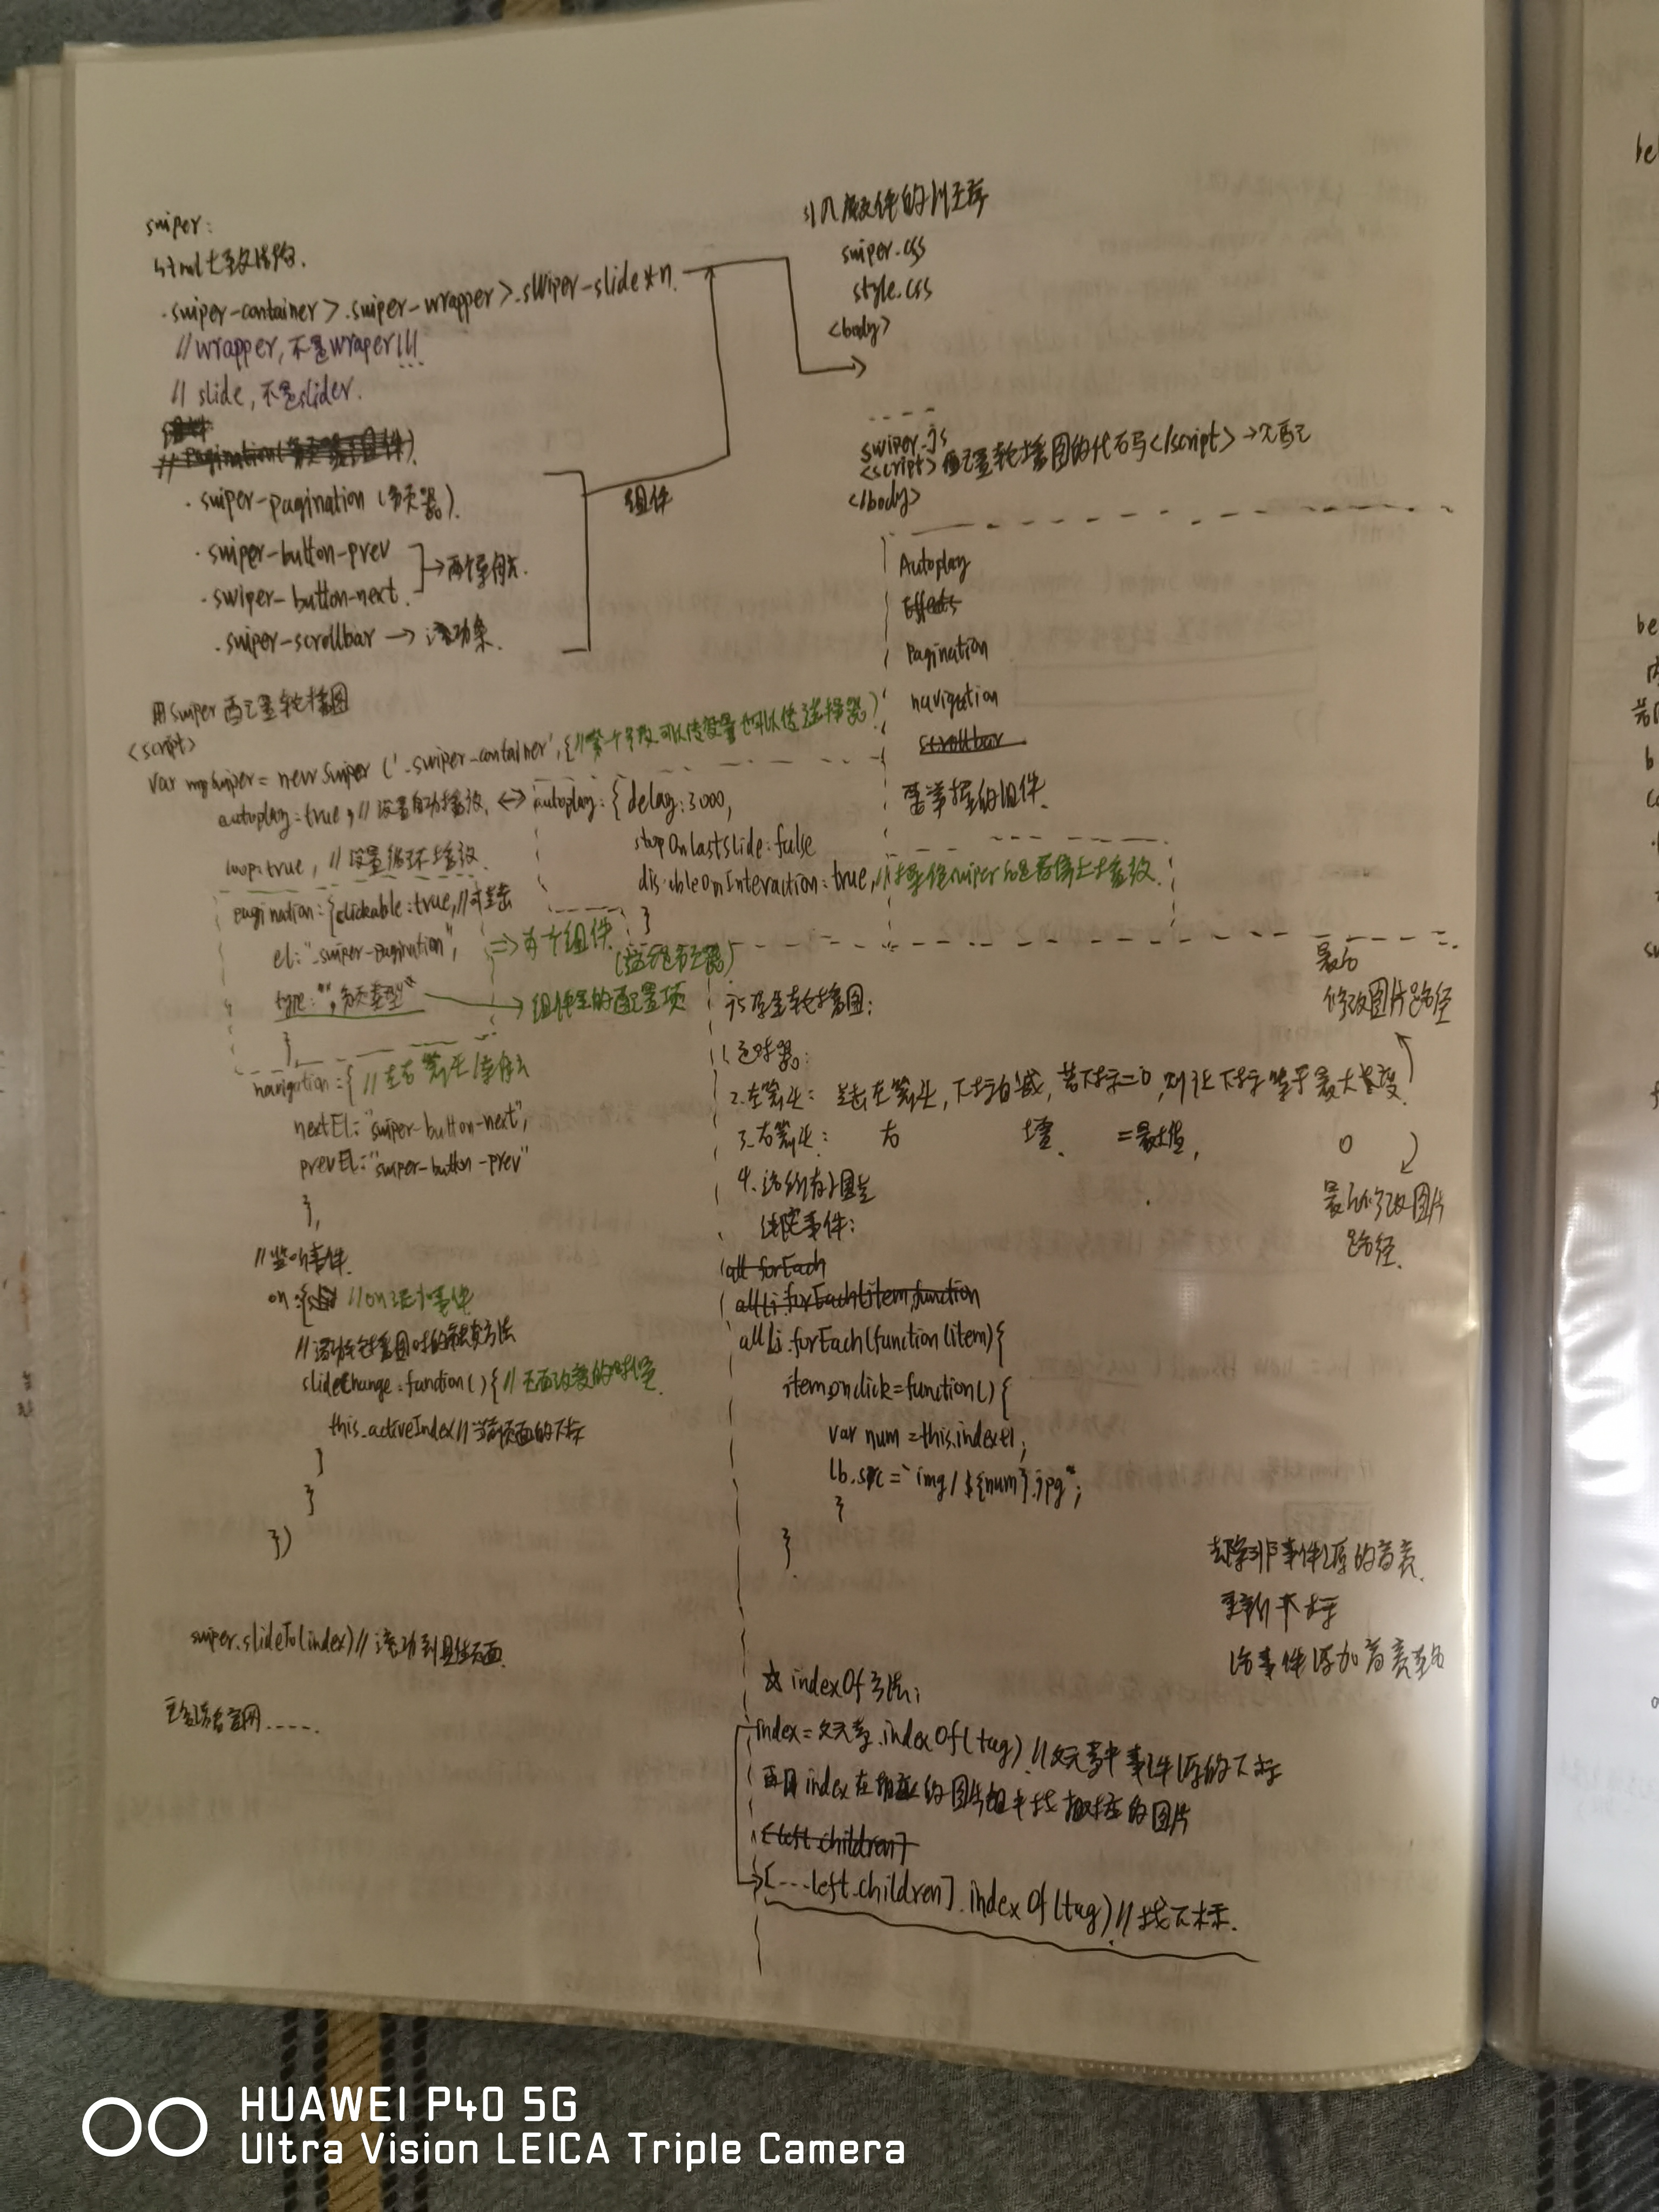 swiper:
html
.swiper-container>.swiper-wrapper>.swiper-slide*n.
//wrapper,不是wraper!!!
// slide,不是slider.
// pagination
.swiper-pagination (分页器).
.swiper-button-prev
.swiper-button-next.
→两个
.swiper-scrollbar → 滚动条.
组件
文件的顺序
swiper.css
style.css
<body>
-----
swiper.js
<script>配置轮播图的代码</script>
</body>
Autoplay
Effects
Pagination
navigation
scrollbar
要掌握的组件.
用swiper配置轮播图
<script>
var mySwiper = new Swiper ('.swiper-container',{//第一个参数可以传变量也可以传选择器)
autoplay:true,//设置自动播放. <-> autoplay:{ delay:3000,
stopOnLastSlide:false
disableOnInteraction:true,//操作swiper后是否停止播放.
}
loop:true, //设置循环播放
pagination:{clickable:true,//可点击
el:".swiper-pagination",
type:"",分页类型"
},
=>为一个组件.
(这是分页器)
→组件里的配置项
navigation:{ //左右箭头
nextEl:"swiper-button-next",
prevEl:"swiper-button-prev"
},
//监听事件
on:{ //on
slideChange:function(){ //页面改变的时候
this.activeIndex//当前页面的下标
}
}
})
swiper.slideTo(index)//滚动到具体页面.
官网-----.
原生轮播图:
1.
2.左箭头: 点击左箭头,下标自减,若下标=0,则让下标等于最大长度.
3.右箭头: 右 增. =最大值, 0
最后
修改图片路径
最后修改图片
路径.
4.给所有小圆点
绑定事件:
all forEach
allLi.forEach(item,function
allLi.forEach(function(item){
item.onclick=function(){
var num =this.index+1;
lb.src=`img/${num}.jpg`;
}
}
去除非事件源的高亮.
更新下标
给事件源加高亮
☆ indexOf方法:
index=父元素.indexOf(tag).//父元素中事件源的下标
再用index在相应的图片组中找相对应的图片
[left.children]
[...left.children].indexOf(tag)//找下标.
HUAWEI P40 5G
Ultra Vision LEICA Triple Camera